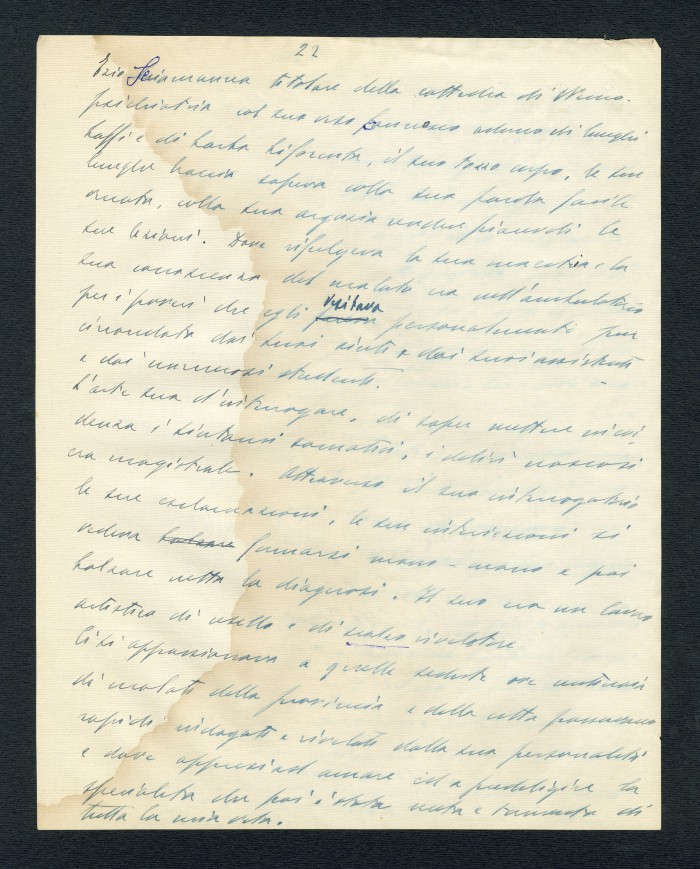 22
Ezio Sciamanna titolare della cattedra di Neuro-
psichiatria col suo viso adorno di lunghi
baffi e di barba bifforcuta, il suo tozzo corpo, le sue
lunghe braccia sapeva colla sua parola facile
ornata, colla sua arguzia rendere piacevoli le
sue lezioni. Dove rifulgeva la sua maestria e la
sua conoscenza del malato era nell'ambulatorio
per i poveri che egli visitava personalmente pur
circondato dai suoi aiuti e dai suoi assistenti
e dai numerosi studenti.
L'arte sua d'interrogare, di saper mettere in evi
denza i sintomi somatici, i deliri nascosi
era magistrale. Attraverso il suo interrogatorio
le sue esclamazioni, le sue si
vedeva balzare formarsi mano-mano e poi
balzare netta la diagnosi. Il suo era un lavoro
artistico di cesello e di scalco rivelatore
Ci si appassionava a quelle sedute ove centinaia
di malati della provincia e della città passavano
rapidi indagati e rivelati dalla sua personalità
e dove appresi ad amare ed a prediligere la
specialità che poi è stata meta e tormento di
tutta la mia vita.